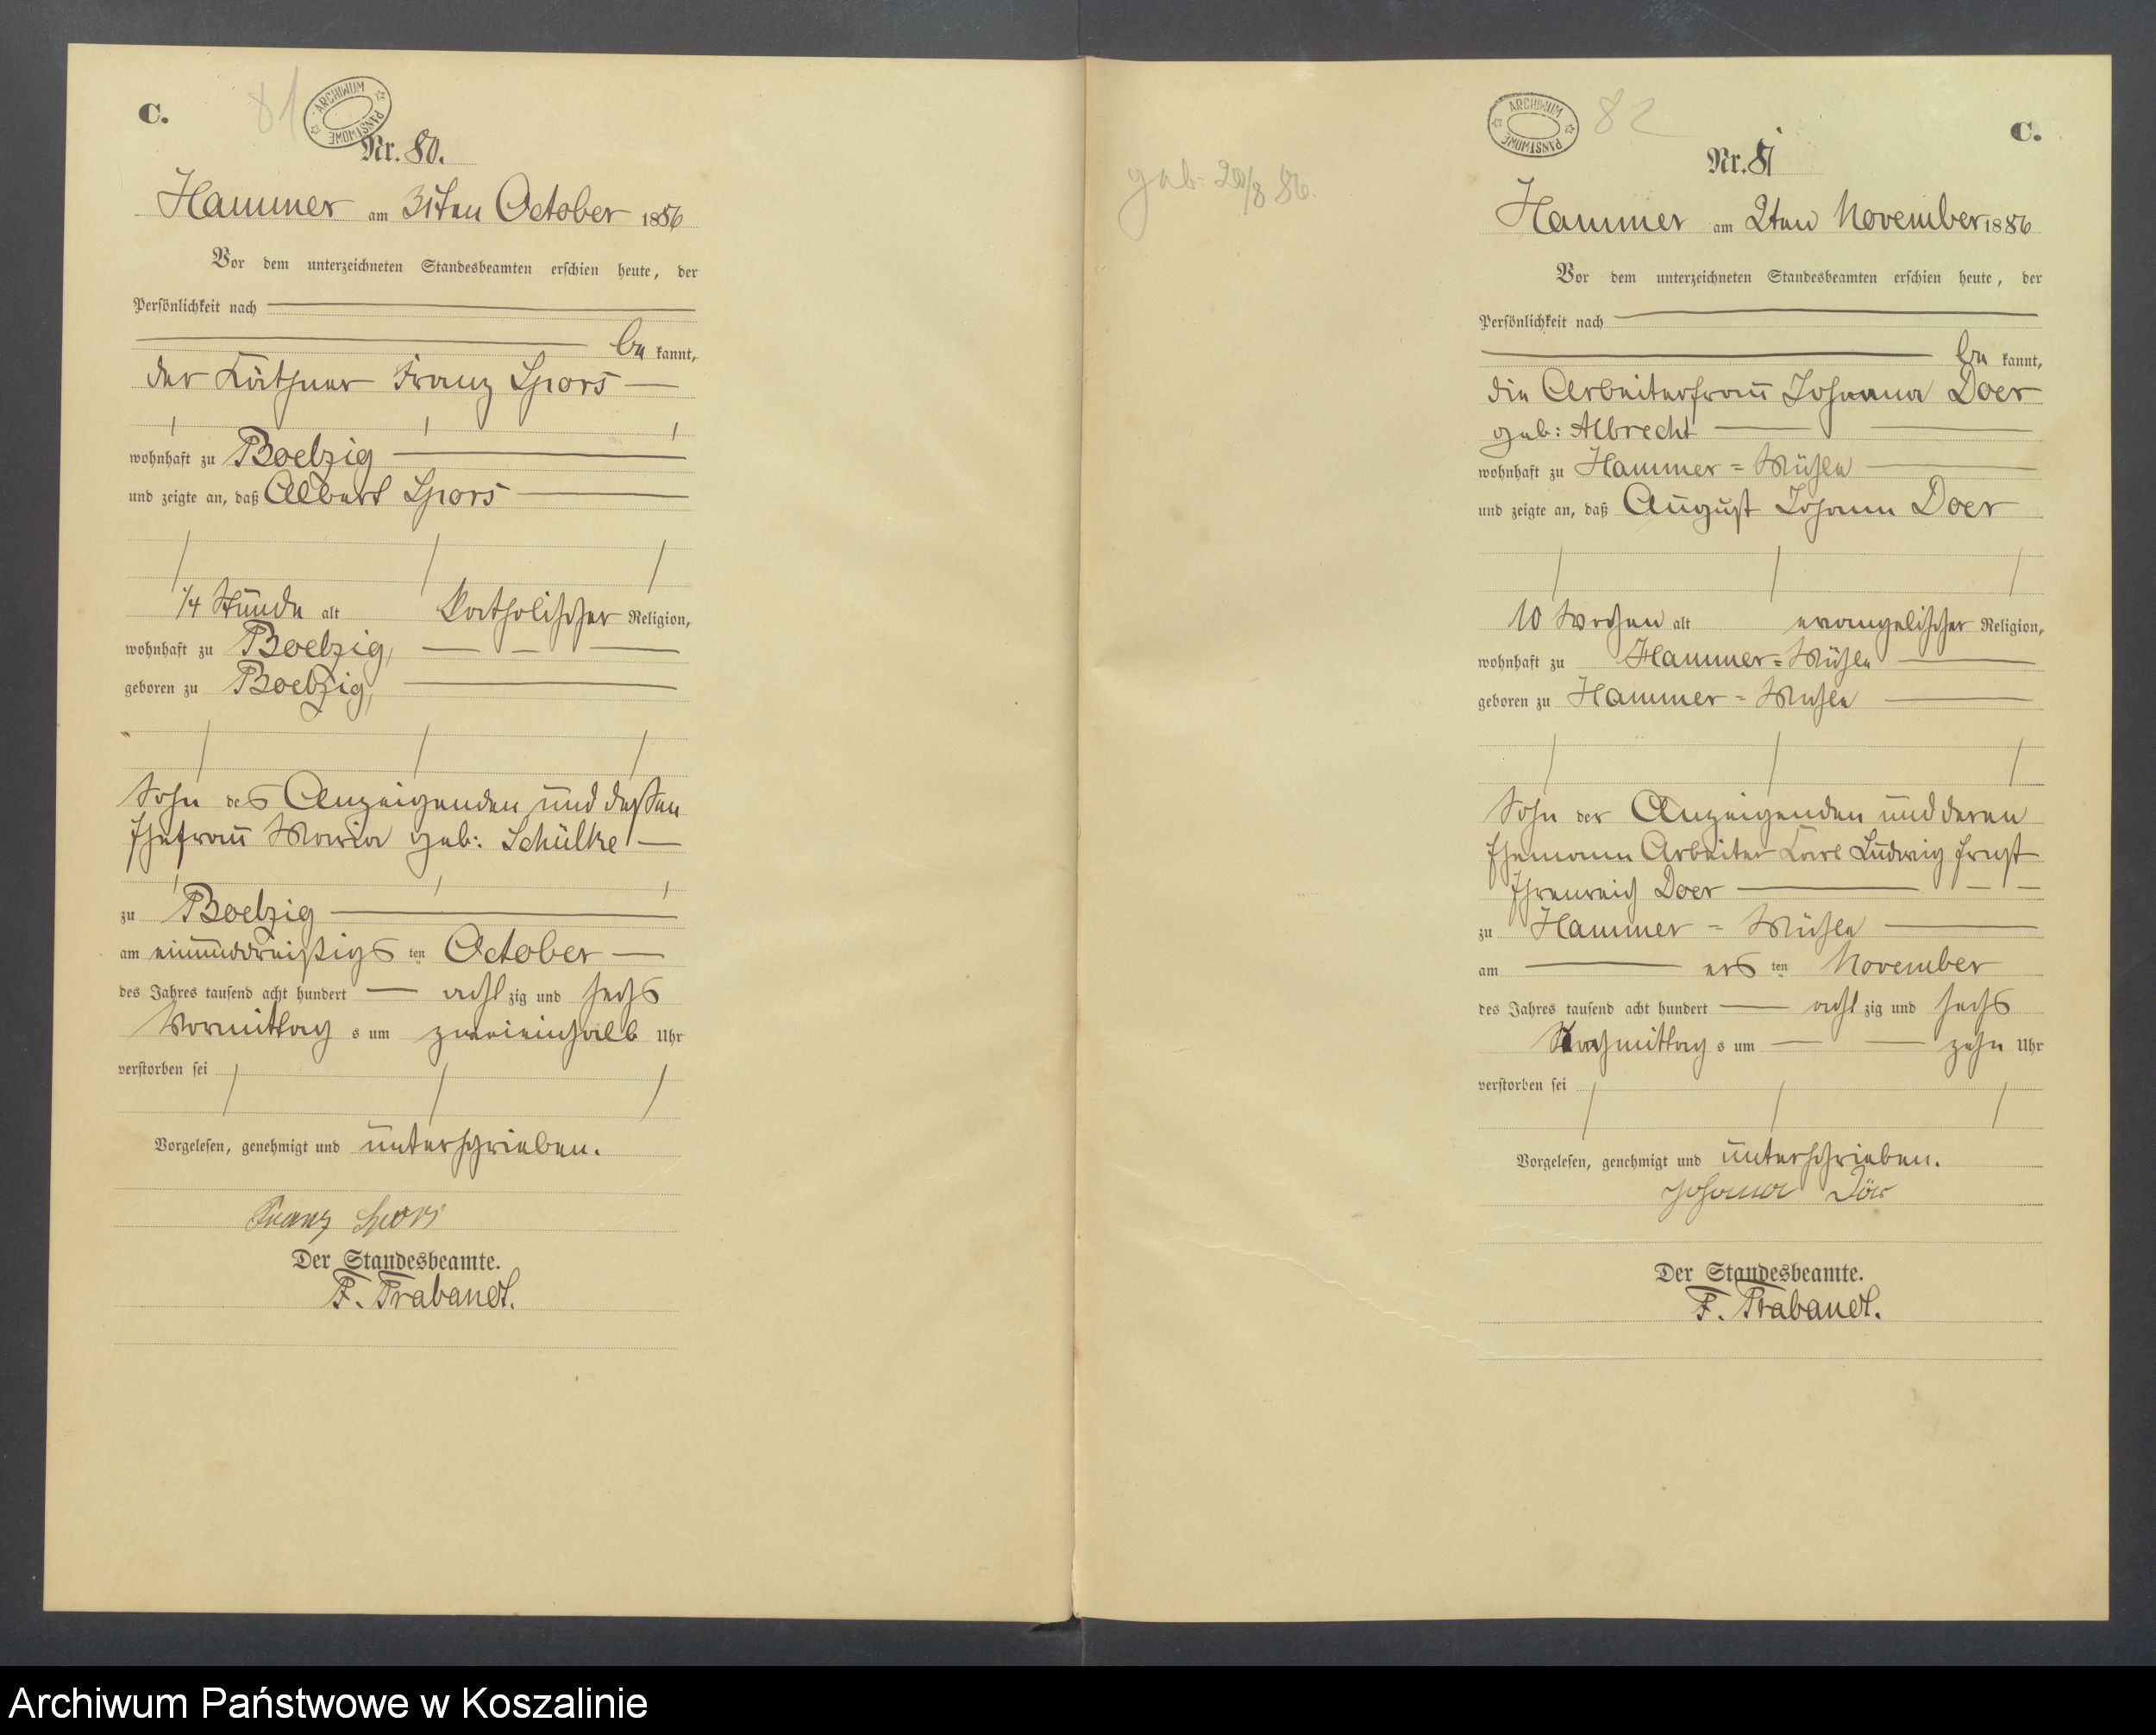 C.
81
ARCHIWUM PAŃSTWOWE
Nr. 80.
Hammer am 31ten October 1886
Vor dem unterzeichneten Standesbeamten erschien heute, der
Persönlichkeit nach
be kannt,
der Käthner Franz Spors
wohnhaft zu Boelzig
und zeigte an, daß Albert Spors
1/4 Stunde alt katholischer Religion,
wohnhaft zu Boelzig,
geboren zu Boelzig,
Sohn des Anzeigenden und dessen
Ehefrau Maria geb: Schülke
zu Boelzig
am einunddreißigsten October
des Jahres tausend acht hundert achtzig und sechs
Vormittags um zweieinhalb Uhr
verstorben sei
Vorgelesen, genehmigt und unterschrieben.
Franz Spors
Der Standesbeamte.
F. Trabandt.
geb: 20/8 86.
ARCHIWUM PAŃSTWOWE
82
C.
Nr. 81
Hammer am 2ten November 1886
Vor dem unterzeichneten Standesbeamten erschien heute, der
Persönlichkeit nach
be kannt,
die Arbeiterfrau Johanna Doer
geb: Albrecht
wohnhaft zu Hammer=Mühle
und zeigte an, daß August Johann Doer
10 Wochen alt evangelischer Religion,
wohnhaft zu Hammer=Mühle
geboren zu Hammer=Mühle
Sohn der Anzeigenden und deren
Ehemann Arbeiter Karl Ludwig Ernst
Ehrenreich Doer
zu Hammer=Mühle
am ersten November
des Jahres tausend acht hundert achtzig und sechs
Nachmittags um zehn Uhr
verstorben sei
Vorgelesen, genehmigt und unterschrieben.
Johanna Dör
Der Standesbeamte.
F. Trabandt.
Archiwum Państwowe w Koszalinie